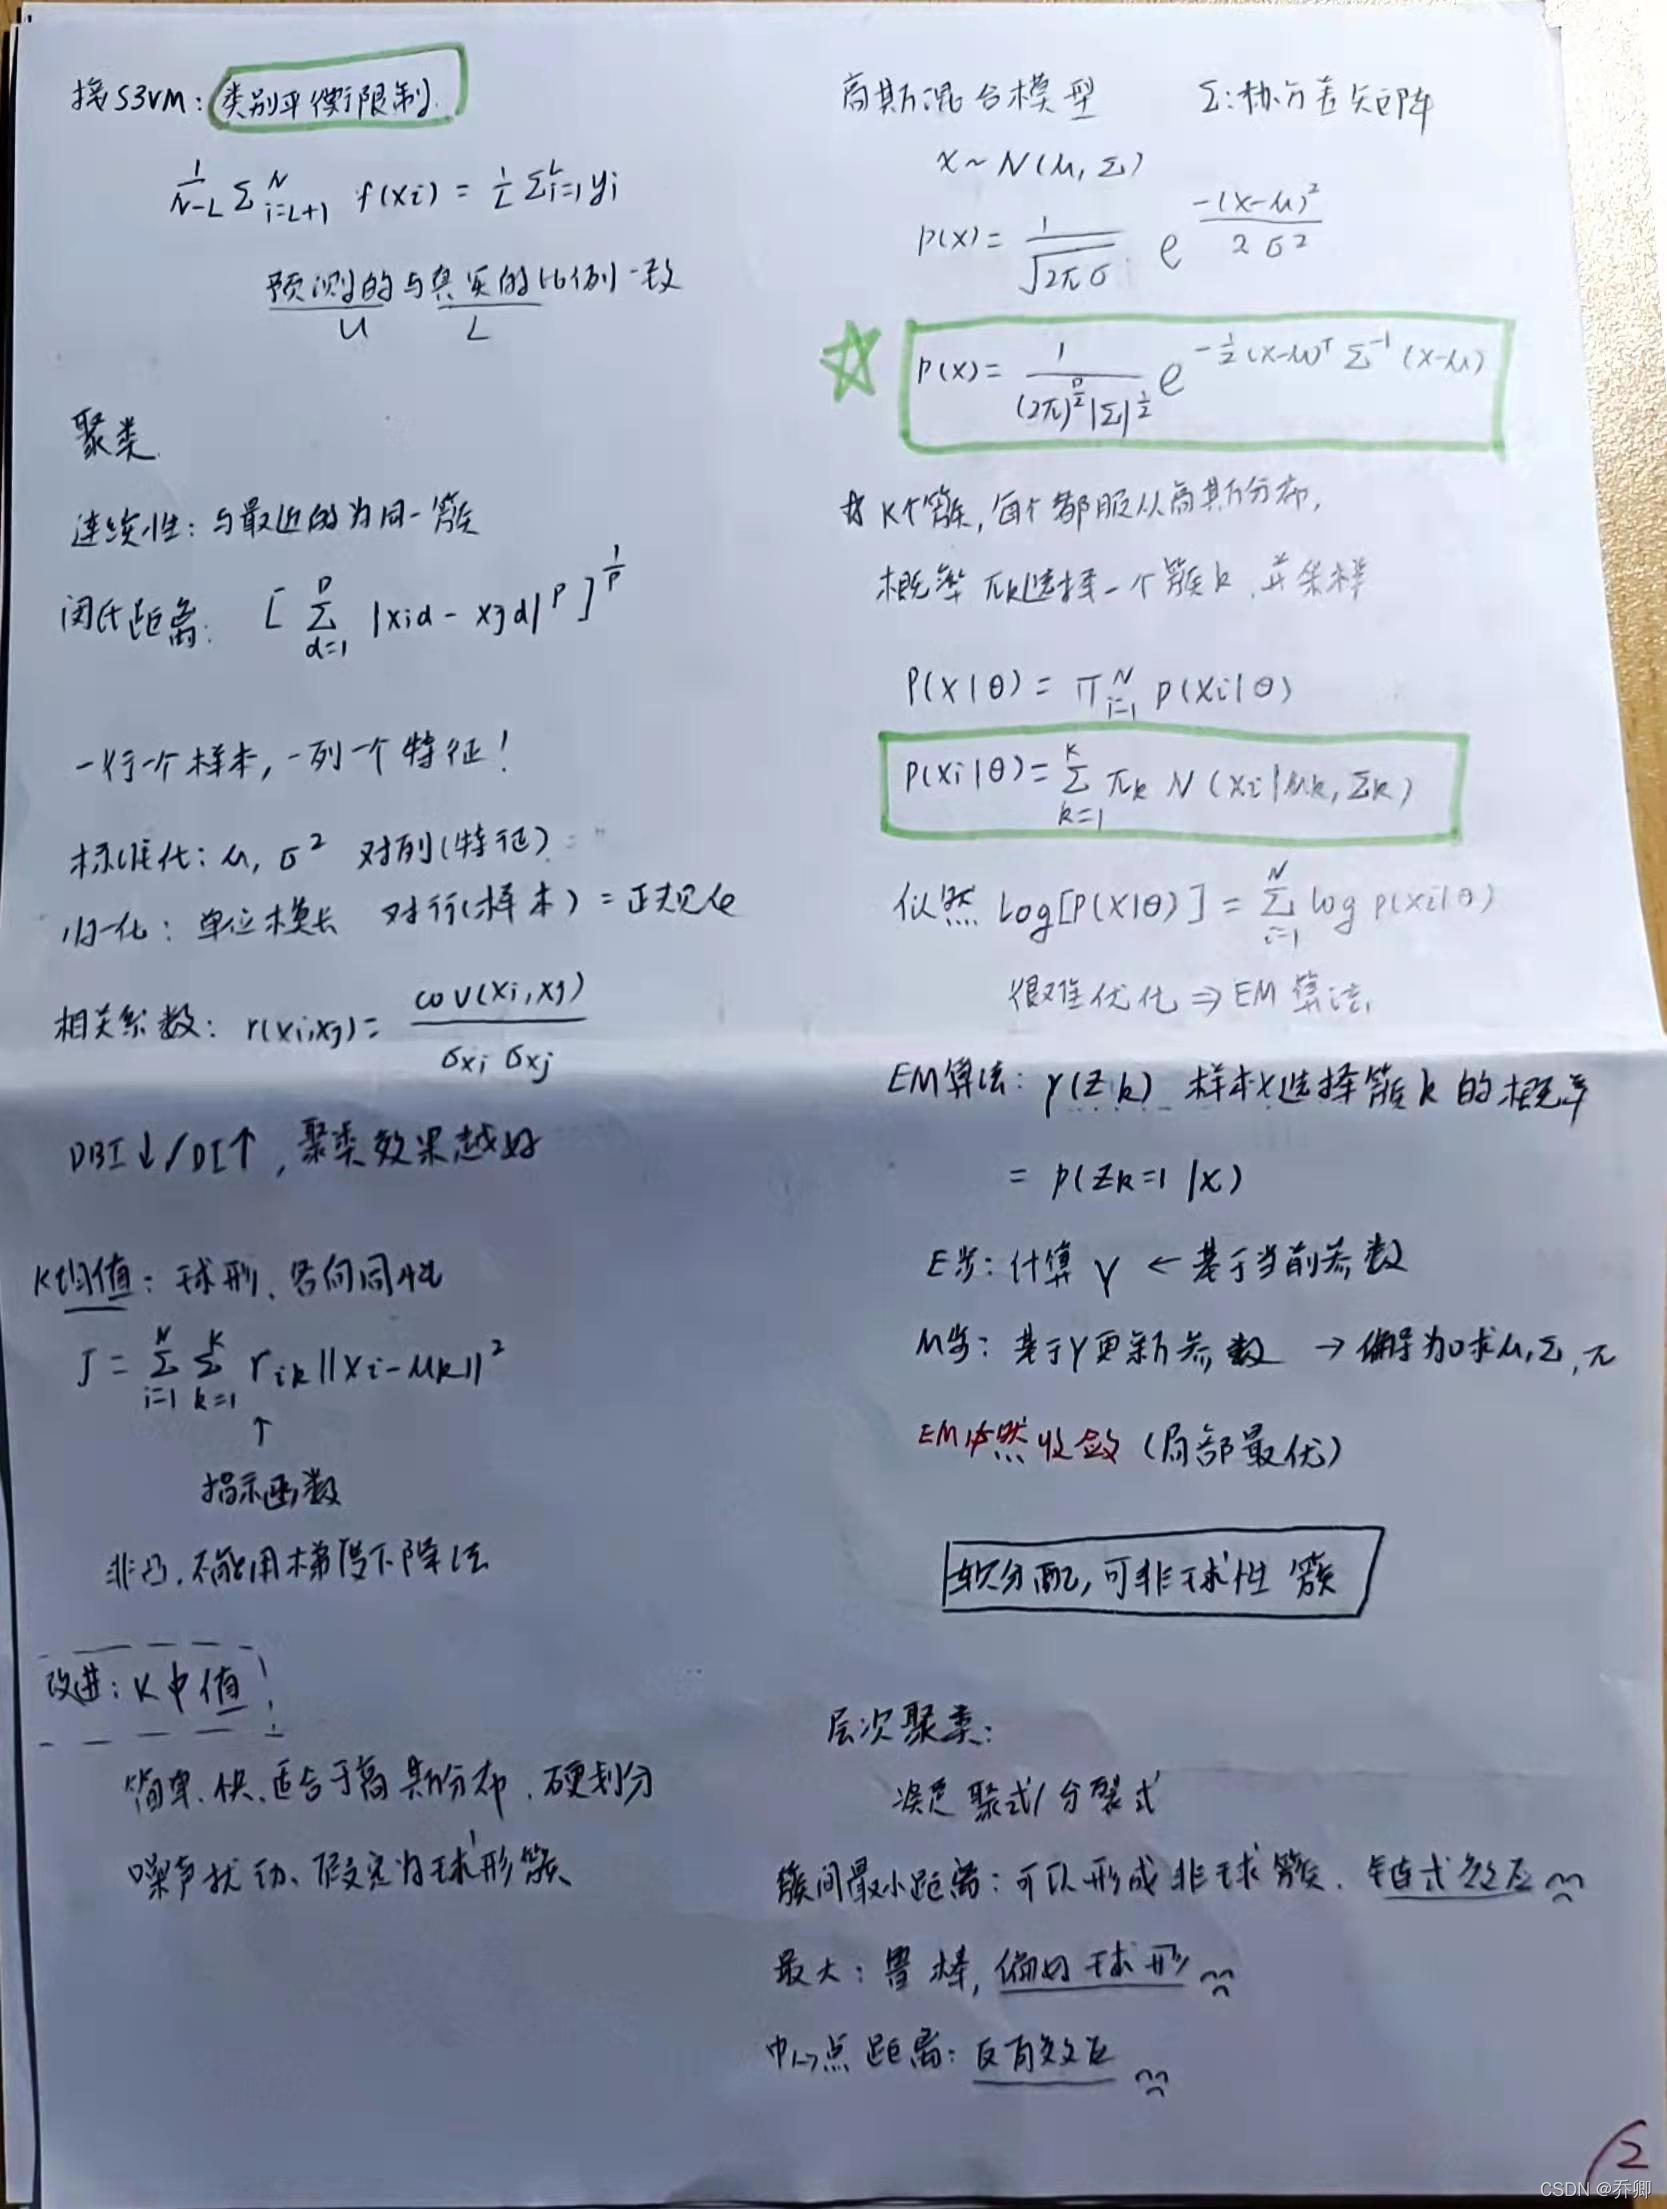 接S3VM: 类别平衡限制
1/(N-L) Σ_{i=L+1}^{N} f(xi) = 1/L Σ_{i=1}^{L} yi
预测的与真实的比例一致
U L
聚类
连续性: 与最近的为同一簇
闵氏距离: [Σ_{d=1}^{D} |xid - xjd|^p]^{1/p}
一行一个样本, 一列一个特征!
标准化: μ, σ² 对列(特征)
归一化: 单位模长 对行(样本) = 正规化
相关系数: r(xi,xj) = cov(xi,xj) / (σxi σxj)
DBI↓/DI↑, 聚类效果越好
K均值: 球形、各向同性
J = Σ_{i=1}^{N} Σ_{k=1}^{K} rik ||xi-μk||²
↑
指示函数
非凸、不能用梯度下降法
改进: K中值
简单、快、适合于高斯分布、硬划分
噪声扰动、假定为球形簇
高斯混合模型 Σ:协方差矩阵
x ~ N(μ, Σ)
p(x) = 1/√(2πσ) e^{-(x-μ)²/2σ²}
☆ p(x) = 1/((2π)^{D/2} |Σ|^{1/2}) e^{-1/2 (x-μ)^T Σ^{-1} (x-μ)}
☆ K个簇, 每个都服从高斯分布,
概率πk选择一个簇k, 并采样
P(X|θ) = Π_{i=1}^{N} p(xi|θ)
p(xi|θ) = Σ_{k=1}^{K} πk N(xi|μk, Σk)
似然 log[P(X|θ)] = Σ_{i=1}^{N} log p(xi|θ)
很难优化 ⇒ EM算法
EM算法: γ(Zk) 样本x选择簇k的概率
= p(Zk=1|x)
E步: 计算γ ← 基于当前参数
M步: 基于γ更新参数 → 偏导为0求μ,Σ,π
EM必然收敛 (局部最优)
软分配, 可非球性簇
层次聚类:
聚式/分裂式
簇间最小距离: 可以形成非球簇、链式效应
最大: 鲁棒, 偏好球形
中心点距离: 反向效应
2
CSDN @乔卿